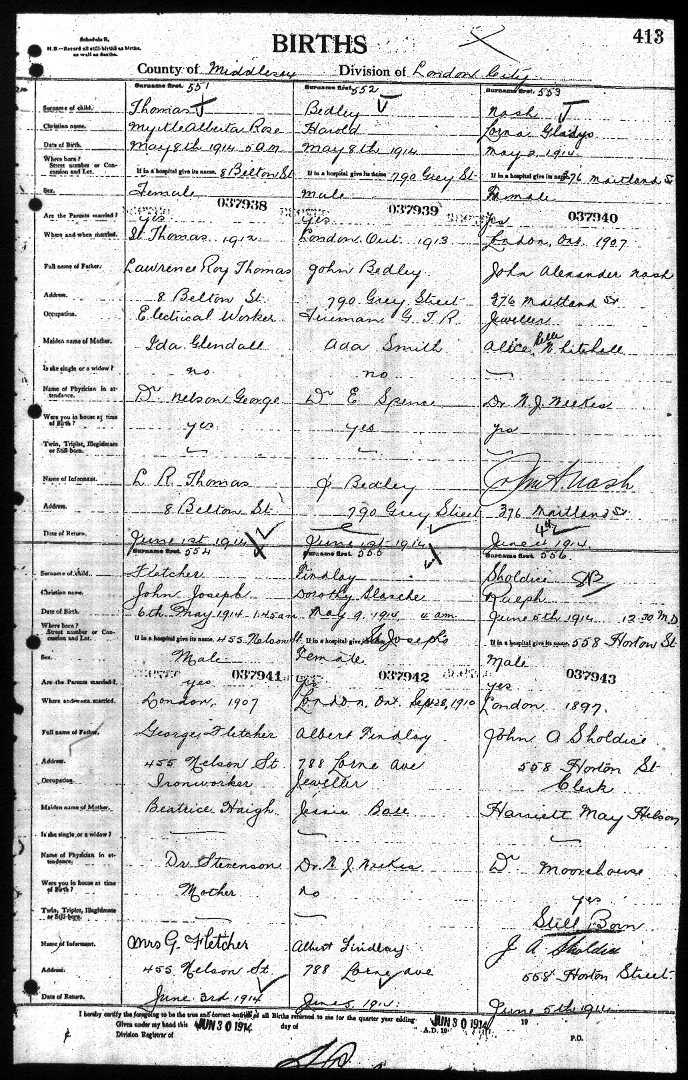 Schedule B.
N.B.—Record all still-births as births, as well as deaths.
BIRTHS
413
County of Middlesex Division of London City
Surname first. 551
Surname first. 552
Surname first. 553
Surname of child.
Thomas
Bedley
Nash
Christian name.
Myrtle Alberta Rose
Harold
Lorna Gladys
Date of Birth.
May 8th 1914 5 a.m
May 8th 1914
May 2, 1914
Where born? Street number or Concession and Lot.
If in a hospital give its name. 8 Belton St
If in a hospital give its name 790 Grey St
If in a hospital give its name 376 Maitland St
Sex.
Female
male
Female
037938
037939
037940
Are the Parents married?
Yes
Yes
Yes
Where and when married.
St Thomas. 1912
London Ont 1913
London, Ont. 1907
Full name of Father.
Lawrence Roy Thomas
John Bedley
John Alexander Nash
Address.
8 Belton St.
790 Grey Street
376 Maitland St
Occupation.
Electrical Worker
Fireman G T R
Jeweller
Maiden name of Mother.
Ida Glendall
Ada Smith
Alice Belle Whitehall
Is she single or a widow?
no
no
—
Name of Physician in attendance.
Dr Nelson George
Dr E Spence
Dr. N. J. Neekes
Were you in house at time of Birth?
yes
yes
yes
Twin, Triplet, Illegitimate or Still-born.
Name of Informant.
L. R. Thomas
J Bedley
John A. Nash
Address.
8 Belton St
790 Grey Street
376 Maitland St
Date of Return.
June 1st 1914
June 1st 1914
June 4th 1914.
Surname first. 554
Surname first. 555
Surname first. 556
Surname of child.
Fletcher
Findlay
Sholdice SB
Christian name.
John Joseph
Dorothy Blanche
Ralph
Date of Birth.
6th May 1914 1.45 am
May 9, 1914, 4 am
June 5th 1914 12-30 M.D
Where born? Street number or Concession and Lot.
If in a hospital give its name. 455 Nelson St
If in a hospital give its name St Josephs
If in a hospital give its name. 558 Horton St
Sex.
Male
Female
Male
037941
037942
037943
Are the Parents married?
yes
yes
yes
Where and when married.
London, 1907
London, Ont Sept 28, 1910
London. 1897.
Full name of Father.
George Fletcher
Albert Findlay
John A Sholdice
Address.
455 Nelson St
788 Lorne Ave
558 Horton St
Occupation.
Ironworker
Jeweller
Clerk
Maiden name of Mother.
Beatrice Haigh
Jessie
Harriett May
Is she single or a widow?
Name of Physician in attendance.
Dr. Stevenson
Dr. N J Neekes
Dr Moorehouse
Were you in house at time of Birth?
Mother
no
yes
Twin, Triplet, Illegitimate or Still-born.
Still Born
Name of Informant.
Mrs G. Fletcher
Albert Findlay
J A Sholdice
Address.
455 Nelson St.
788 Lorne ave
558 Horton Street
Date of Return.
June 3rd 1914
June 5, 1914.
June 5th 1914
I hereby certify the foregoing to be the true and correct entries of all Births returned to me for the quarter year ending JUN 30 1914 19
Given under my hand this JUN 30 1914 day of A.D. 19
Division Registrar of P.O.